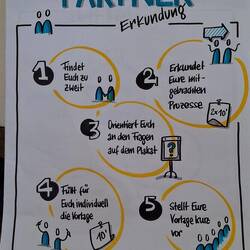 PARTNER
Erkundung
1
Findet
Euch zu
zweit
2
Erkundet
Eure mit-
gebrachten
Prozesse
2x10'
3
Orientiert Euch
an den Fragen
auf dem Plakat
?
4
Füllt für
Euch individuell
die Vorlage
10'
5
Stellt Eure
Vorlage kurz
vor